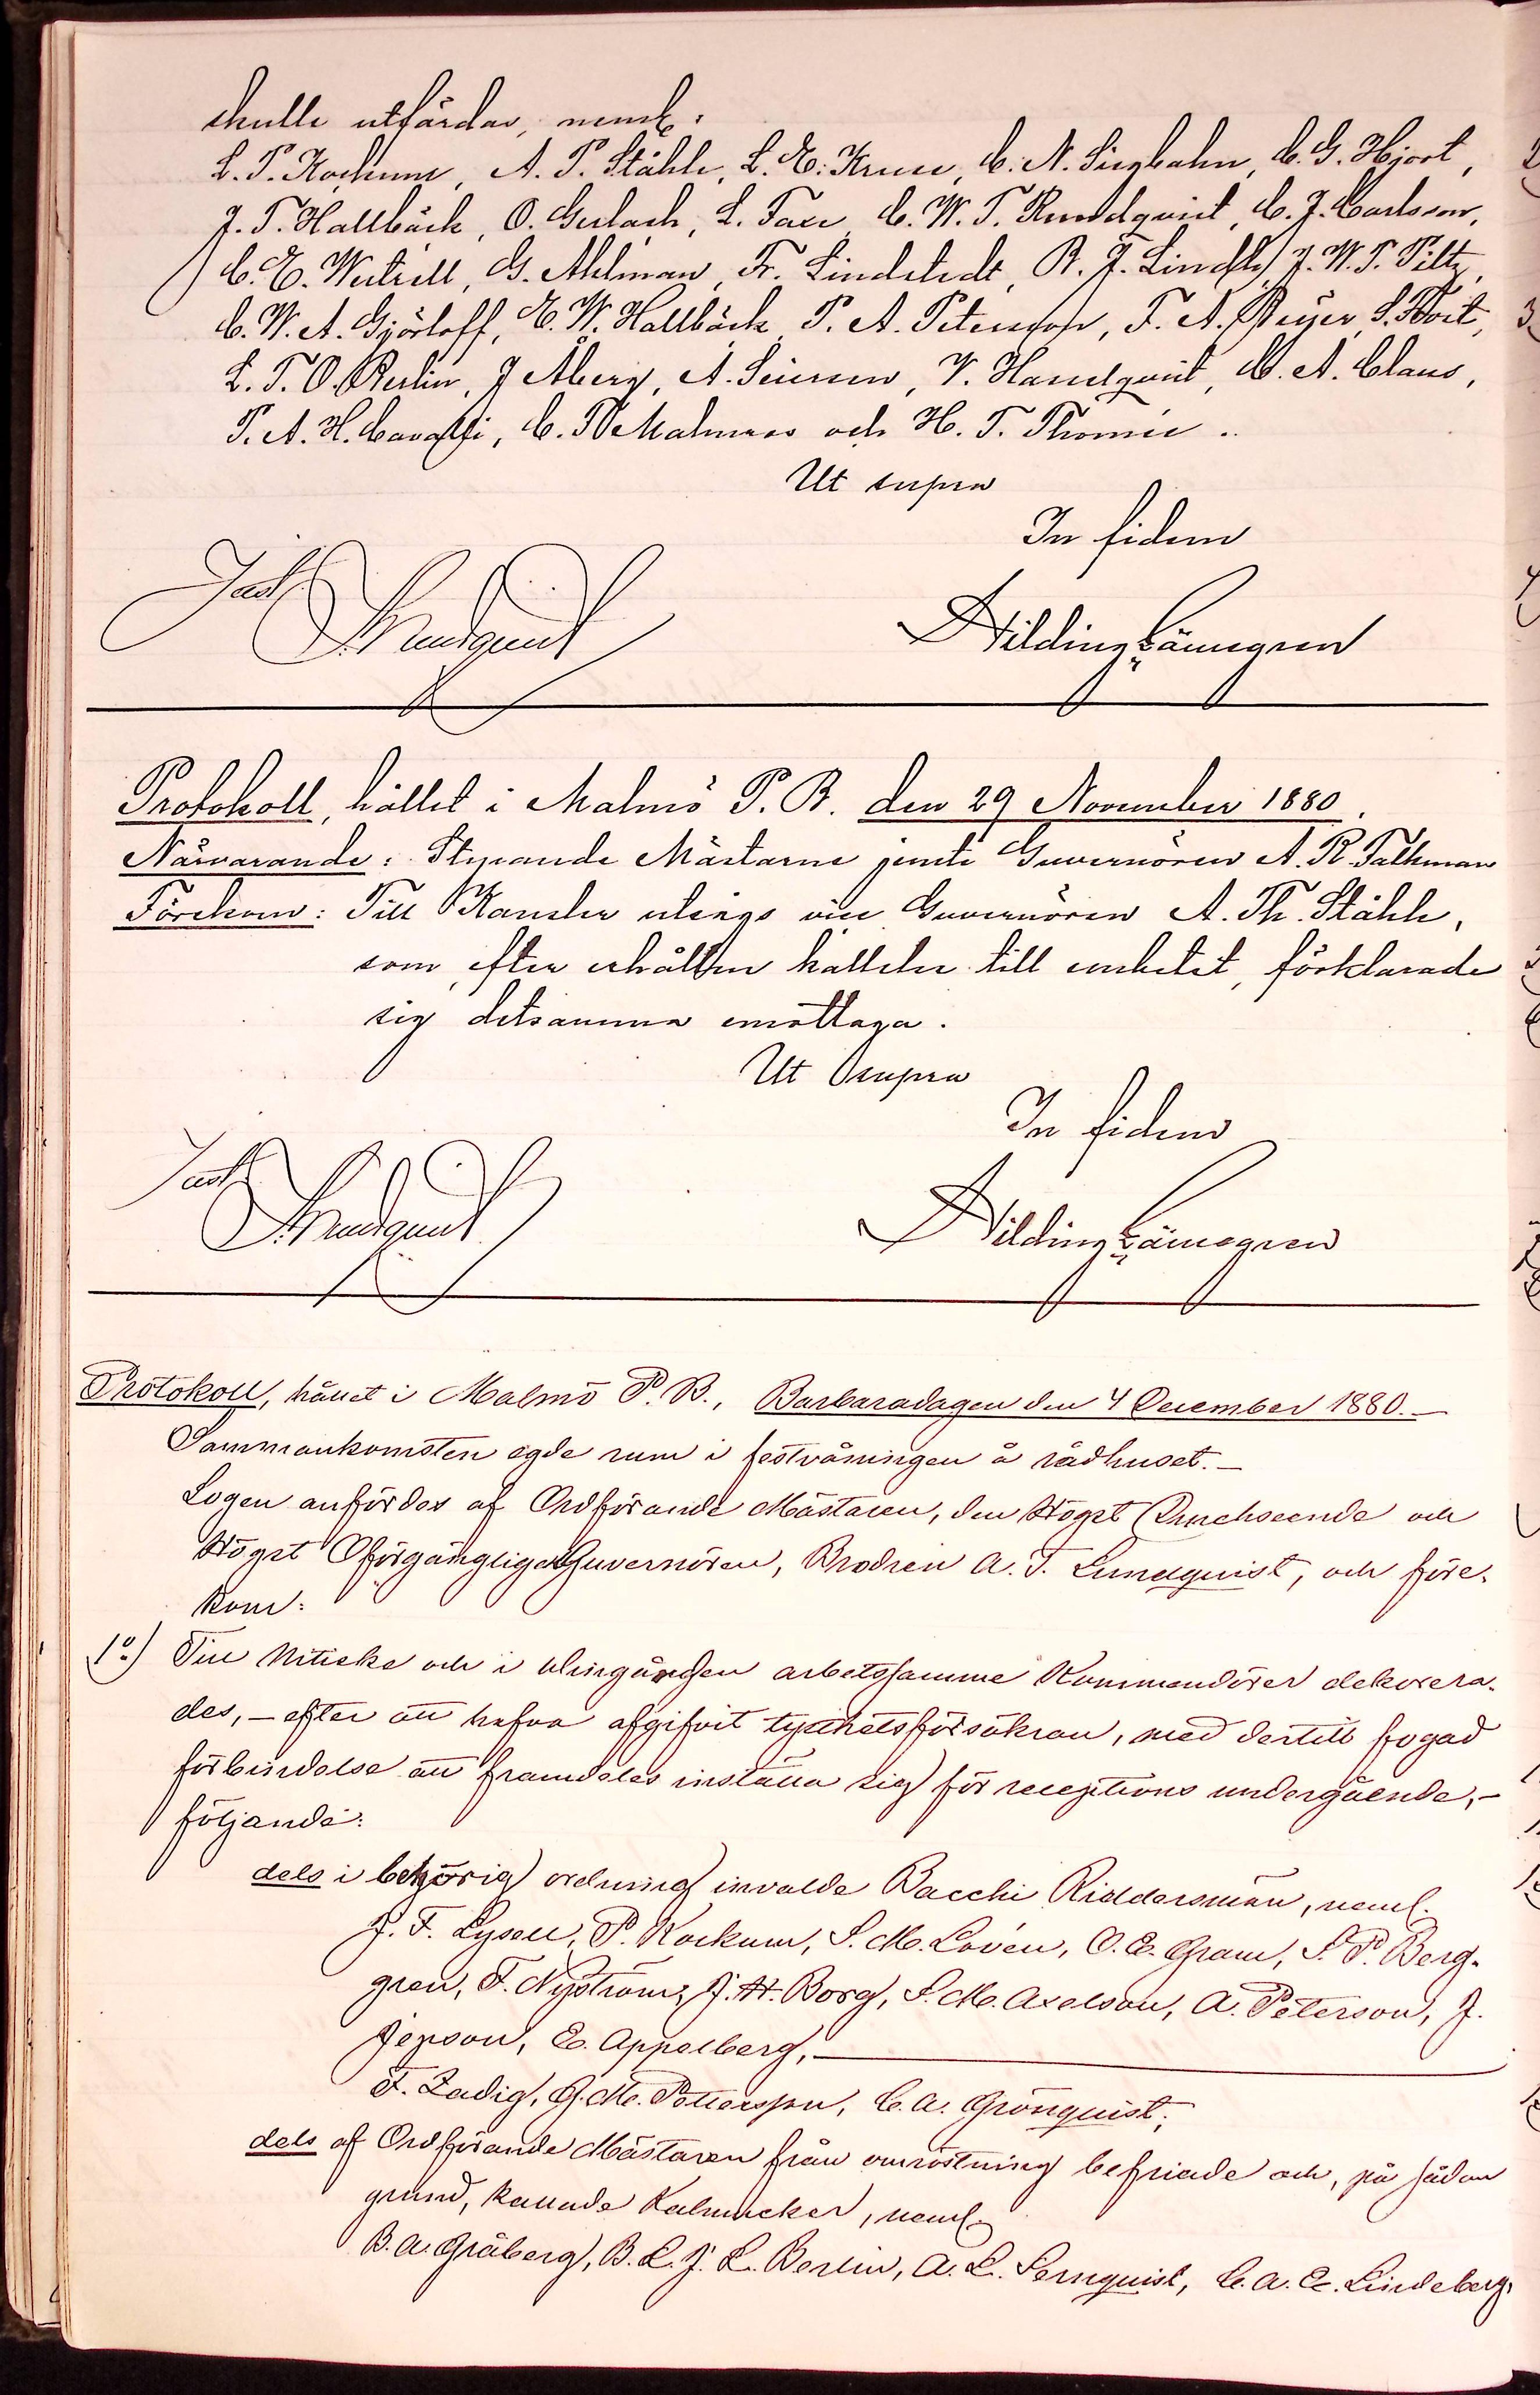 skulle utfärdas, neml:
L. P. Kockum, A. T. Ståhle, L. E. Kruse, C. N. Siegbahn, C. G. Hjort,
J. T. Hallbäck, O. Gerlach, L. Faxe, C. W. T. Rundquist, C. J. Carlsson,
C. E. Wetrell, G. Ahlman, Fr. Lindstedt, B. F. Lindhe, J. W. T. Piltz,
C. W. A. Gjörloff, E. W. Hallbäck, P. A. Peterson, F. A. Beijer, S.
L. T. O. Berlin, J Åberg, A. V. Handquist, C. A. Claus,
P. A. H. Cavalli, C. T. Malmros och H. T. Thomée.
Ut supra
In fidem
Just.
Lundquist
Hilding Länegren
Protokoll, hållet i Malmö P. B. den 29 November 1880.
Närvarande: Styrande Mästarne jemte Guvernören A. R. Falkman
Förekom: Till Kansler utsågs vice Guvernören A. Th. Ståhle,
som, efter erhållen kallelse till embetet, förklarade
sig detsamma emottaga.
Ut supra
In fidem
Just.
Lundquist
Hilding Länegren
Protokoll, hållet i Malmö P. B., Barbaradagen den 4 December 1880.—
Sammankomsten egde rum i festvåningen å rådhuset.—
Logen anfördes af Ordförande Mästaren, den Högst Genomseende och
Högst Oförgänglige Guvernören, Brodren A. T. Lundquist, och före-
kom:
1o.) Till Nitiske och i arbetssamme Kommendörer dekorera-
des, — efter att hafva afgifvit tysthetsförsäkran, med dertill fogad
förbindelse att framdeles inställa sig för receptions undergående, —
följande:
dels i behörig ordning invalde Bacchi Riddersmän, neml.
J. F. Lysell, P. Kockum, S. M. Lovén, O. E. Gram, S. P. Berg-
gren, F. Nyström, J. H. Borg, S. M. Axelson, A. Peterson, J.
Jepson, E. Appelberg, —
F. Zadig, G. M. Pettersson, C. A. Grönquist;
dels af Ordförande Mästaren från omröstning befriade och, på sådan
grund, kallade Kalmucker, neml.
B. A. Gråberg, B. L. J. L. Berlin, A. L. Sernquist, C. A. E. Lindeberg,